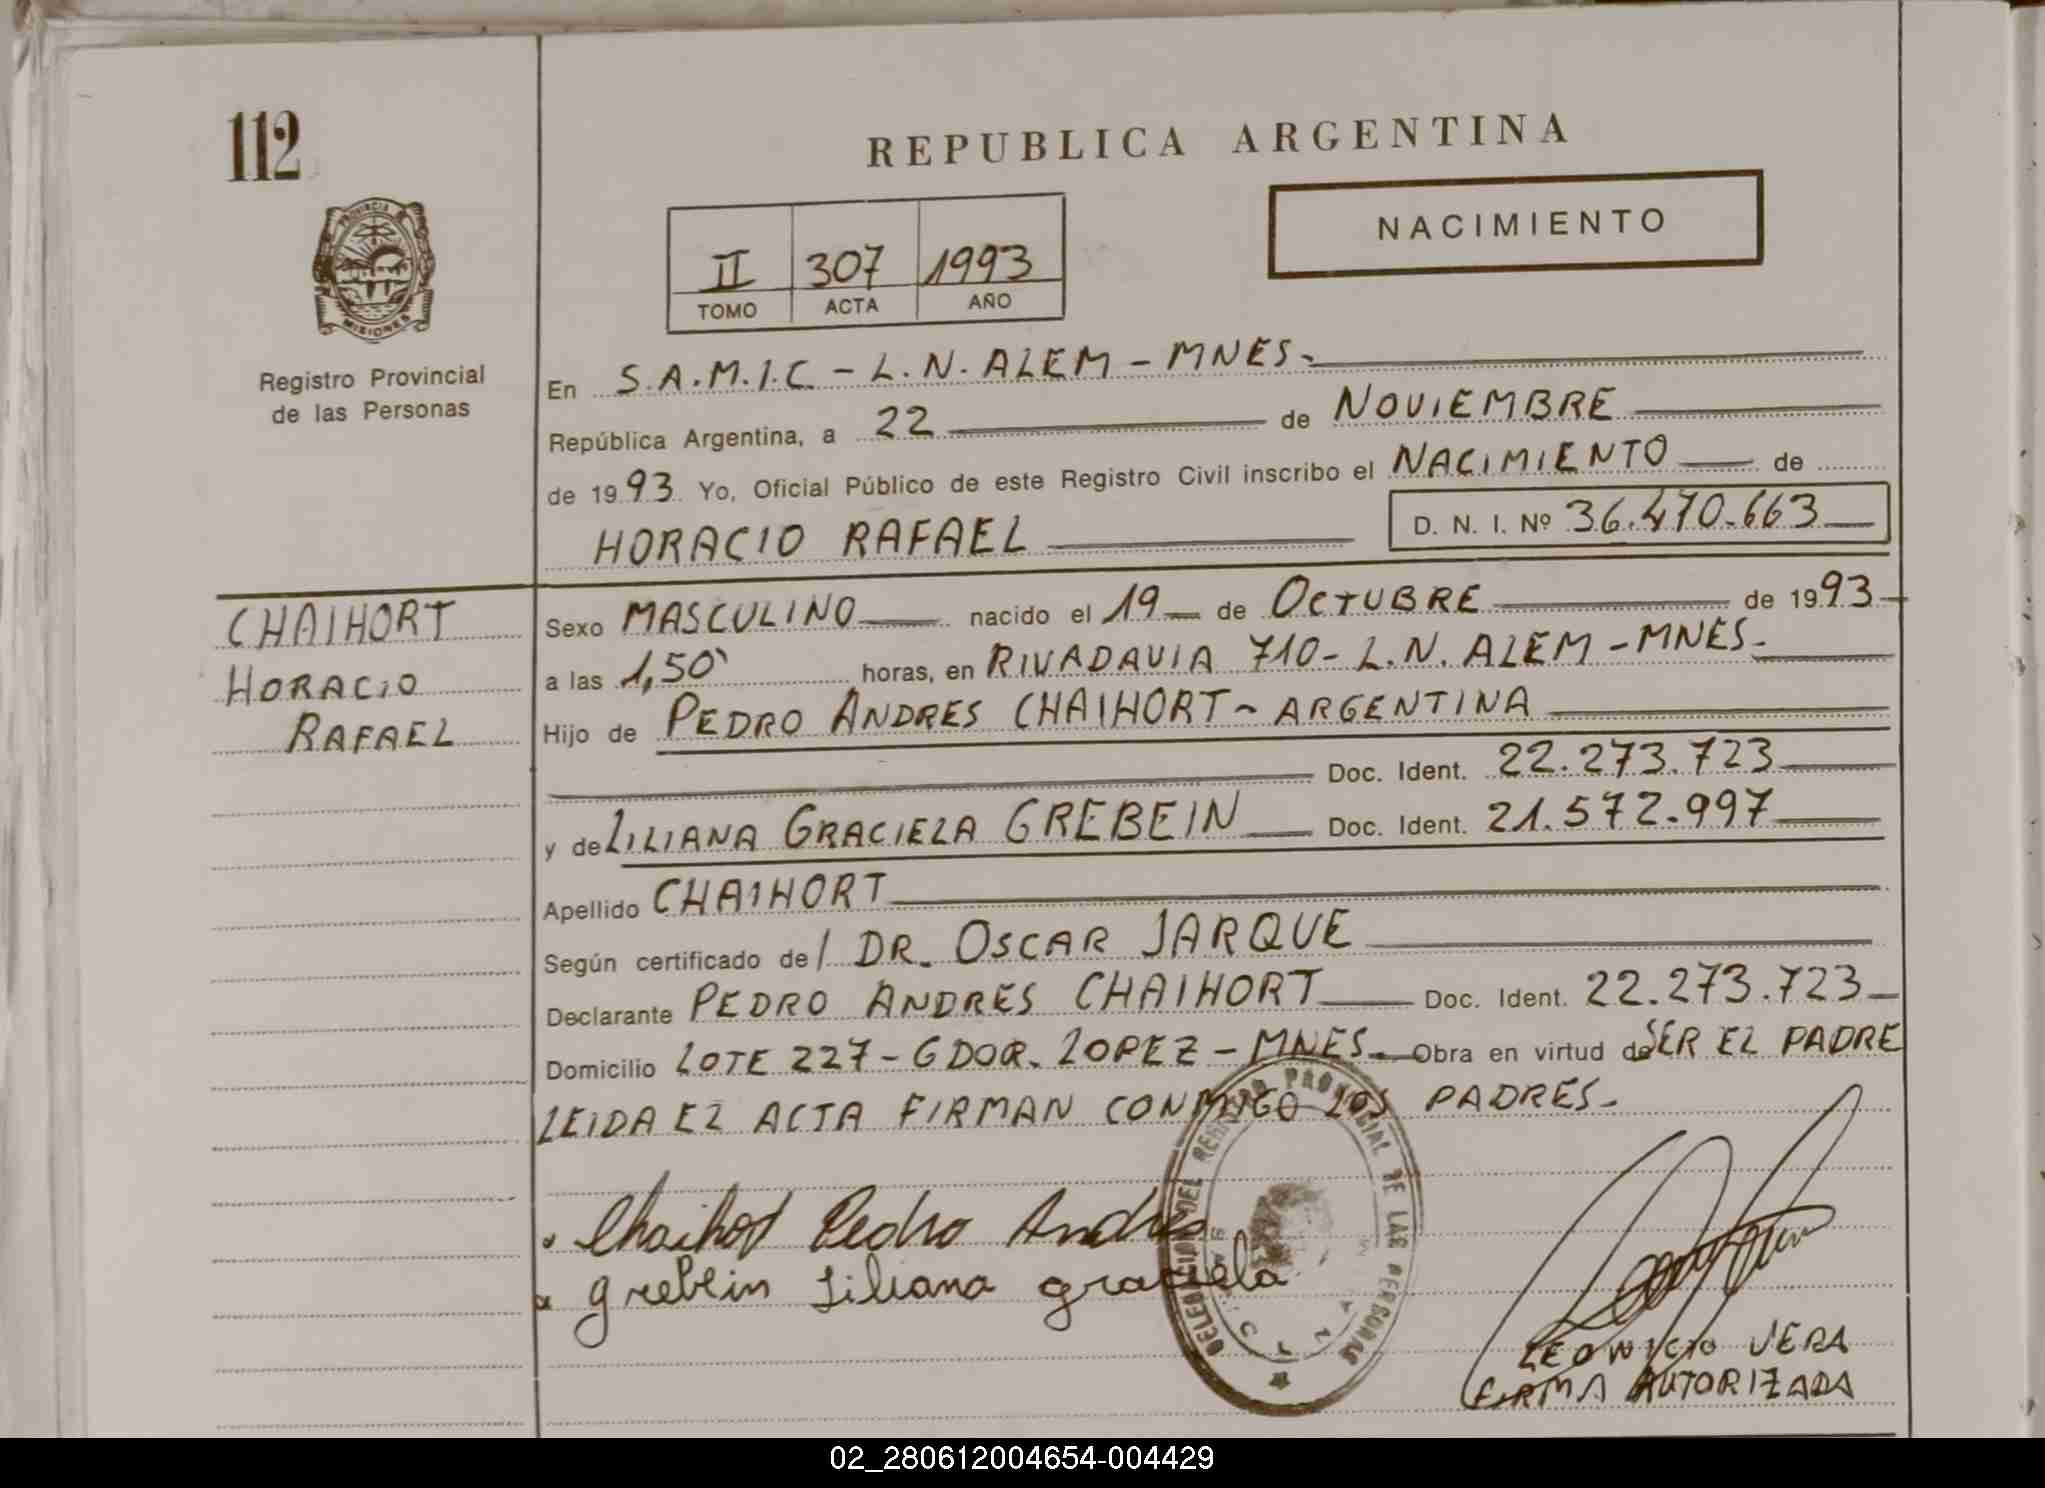 112
REPUBLICA ARGENTINA
NACIMIENTO
II 307 1993
TOMO ACTA AÑO
PROVINCIA DE
MISIONES
Registro Provincial
de las Personas
En S.A.M.I.C. - L.N. ALEM - MNES.
República Argentina, a 22 de NOVIEMBRE
de 1993 Yo, Oficial Público de este Registro Civil inscribo el NACIMIENTO de
HORACIO RAFAEL D. N. I. Nº 36.470.663
CHAIHORT
HORACIO
RAFAEL
Sexo MASCULINO nacido el 19 de OCTUBRE de 1993
a las 1,50` horas, en RIVADAVIA 710 - L.N. ALEM - MNES-
Hijo de PEDRO ANDRES CHAIHORT - ARGENTINA
Doc. Ident. 22.273.723
y de LILIANA GRACIELA GREBEIN Doc. Ident. 21.572.997
Apellido CHAIHORT
Según certificado del DR. OSCAR JARQUE
Declarante PEDRO ANDRES CHAIHORT Doc. Ident. 22.273.723
Domicilio LOTE 227 - GDOR. LOPEZ - MNES. Obra en virtud de SER EL PADRE
LEIDA EL ACTA FIRMAN CONMIGO LOS PADRES.
DELEGACION DEL REGISTRO PROVINCIAL DE LAS PERSONAS
Chaihort Pedro Andres
Greblin Liliana graciela
LEONICIO VERA
FIRMA AUTORIZADA
02_280612004654-004429